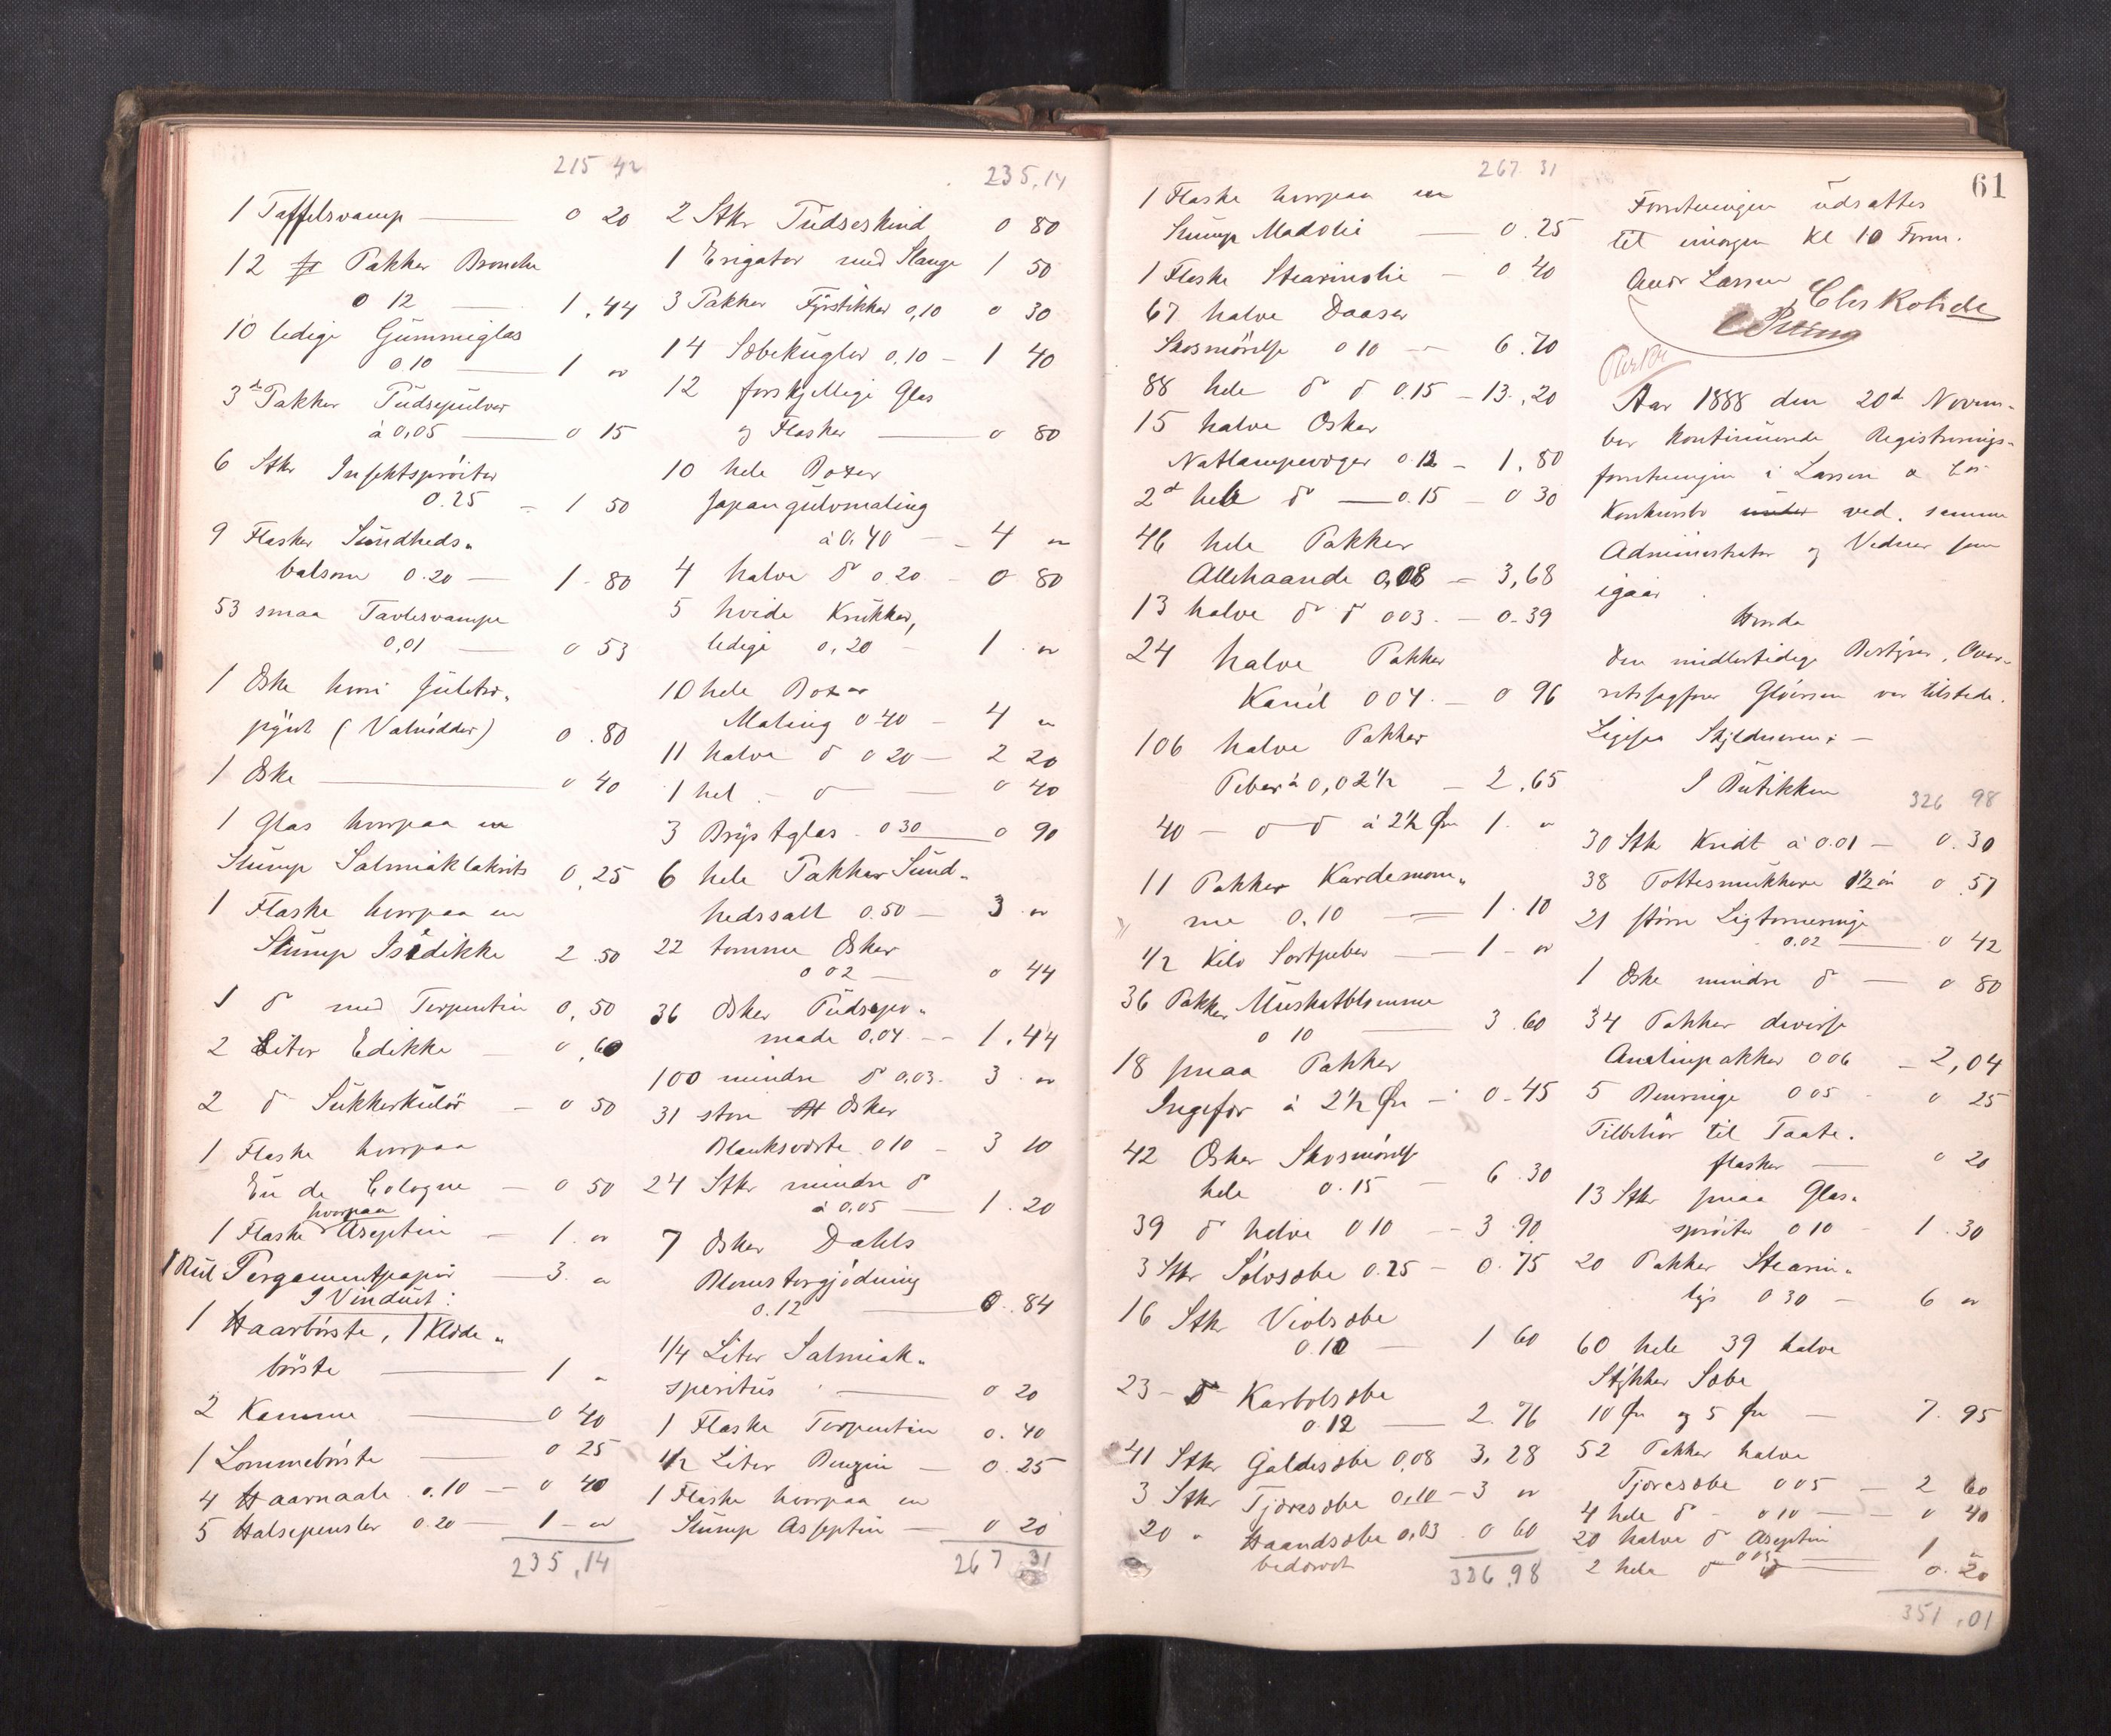 215 42
1 Taffelsvamp — 0 20
12 Pakker Bronche
0 12 — 1,44
10 ledige Gummiglas
0.10 — 1 "
3 Pakker Pudsepulver
à 0,05 — 0 15
6 Stkr Insektsprøiter
0.25 - 1 50
9 Flasker Sundheds-
balsom 0.20 — 1-80
53 smaa Tavlesvampe
0,01 — 0 53
1 Æske hvori Juletræ-
pynt (Valnødder) 0.80
1 Æske — 0 40
1 Glas hvorpaa en
Stump Salmiaklakrits 0,25
1 Flaske hvorpaa en
Stump Isedikke 2.50
1 do med Terpentin 0,50
2 Liter Edikke — 0,60
2 do Sukkerkulør — 0 50
1 Flaske hvorpaa
Eu de Cologne — 0 50
1 Flaske hvorpaa Aseptin — 1 "
1 Rul Pergamentpapir — 3 "
I Vinduet:
1 Haarbørste, 1 Klæde-
børste — 1 "
2 Kamme — 0 40
1 Lommebørste — 0 25
4 Haarnaale 0.10 — 0 40
5 Halsepensler 0.20 — 1 "
235,14
235,14
2 Stkr Pudseskind 0 80
1 Erigator med Slange 1 50
3 Pakker Fyrstikker 0,10 0 30
14 Sæbekugler 0,10 - 1 40
12 forskjellige Glas
og Flasker — 0 80
10 hele Boxer
Japangulvmaling
à 0.40 — 4 "
4 halve do 0.20 - 0 80
5 hvide Krukker,
ledige 0,20 - 1 "
10 hele Boxer
Maling 0 40 - 4 "
11 halve do 0 20 - 2 20
1 hel - do — 0 40
3 Brystglas 0 30 — 0 90
6 hele Pakker Sund-
hedssalt 0.50 — 3 "
22 tomme Æsker
0 02 — 0 44
36 Æsker Pudsepo-
made 0,04 -- 1,44
100 mindre do 0,03. 3 "
31 store Æsker
Blanksværte 0 10 - 3 10
24 Stkr mindre do
à 0,05 — 1.20
7 Æsker Dahls
Blomstergjødning
0.12 — 0.84
1/4 Liter Salmiak-
speritus — 0 20
1 Flaske Terpentin 0.40
1/2 Liter Benzin — 0.25
1 Flaske hvorpaa en
Stump Asseptin — 0 20
267 31
267 31
1 Flaske hvorpaa en
Stump Madolie — 0.25
1 Flaske Stearinolie — 0 40
67 halve Daaser
Skosmørelse 0 10 — 6.70
88 hele do do 0.15 - 13.,20
15 halve Æsker
Natlampevæger 0.12 - 1,80
2 hele do — 0.15 - 0 30
46 hele Pakker
Allehaande 0,08 — 3,68
13 halve do do 0 03. - 0-39
24 halve Pakker
Kanel 0 04. - 0 96
106 halve Pakker
Peber à 0,02 1/2 - 2,65
40 - do do à 2 1/2 Øre 1. "
11 Pakker Kardemom-
me 0.10 — 1.10
1/2 Kilo Sortpeber — 1 - "
36 Pakker Muskatblomme
0 10 — 3.60
18 smaa Pakker
Ingefær à 2 1/2 Øre - 0-45
42 Æsker Skosmørelse
hele 0.15 - 6.30
39 do halve 0 10 -- 3.90
3 Stkr Sølvsæbe 0.25 - 0.75
16 Stkr Violsæbe
0.10 — 1 60
23 - do Karbolsæbe
0.12 — 2.76
41 Stkr Galdesæbe 0,08 3,28
3 Stkr Tjæresæbe 0,10 - 3 "
20 " Haandsæbe 0,03 0 60
bedærvet
326,98
61
Forretningen udsattes
til imorgen Kl 10 Form.
Andr Larsen
Aar 1888 den 20de Novem-
ber kontinuerede Registrerings-
forretningen i Larsen & Co's
Konkursbo ved samme
Administrator og Vidner som
igaar.
Hvorda
Den midlertidige Bestyrer, Over-
retssagfører Gløersen var tilstede.
Ligesaa Skyldneren: —
I Butikken
326 98
30 Stk Kridt à 0.01 — 0.30
38 Tottesmukkere 1 1/2 øre 0.57
21 større Ligtorneringe
0.02 — 0 42
1 Æske mindre do — 0 80
34 Pakker diverse
Anelinpakker 0 06 - 2,04
5 Benringe 0 05 - 0 25
Tilbehør til Taate-
flasker — 0 20
13 Stkr smaa Glas-
sprøiter 0 10 - 1.30
20 Pakker Stearin-
lys 0 30 - 6 "
60 hele 39 halve
Stykker Sæbe
10 Øre og 5 Øre — 7.95
52 Pakker halve
Tjæresæbe 0 05 - 2 60
4 hele do - 0 10 — 0 40
20 halve do Aseptin
0 05 — 1 "
2 hele do — 0.20
351,01